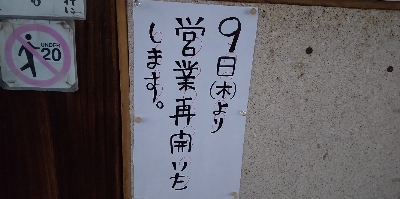 9日(木)より
営業再開いた
します。
UNDER
20